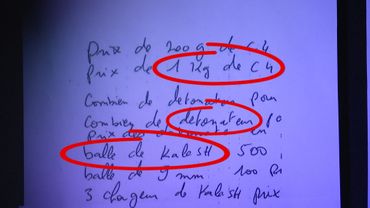 prix de 200 g de C4
prix de 1 Kg de C4
Combien de detonateur pour
Combien de detonateur
prix des en
balle de Kalash 500
balle de 9 mm 100 pi
3 chargeur de Kalash prix